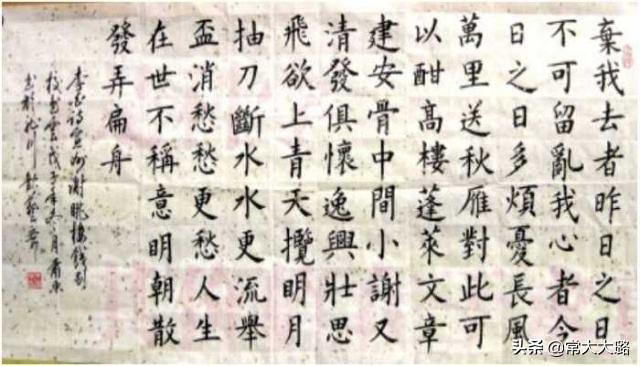 棄我去者昨日之日
不可留亂我心者今
日之日多煩憂長風
萬里送秋雁對此可
以酣高樓蓬萊文章
建安骨中間小謝又
清發俱懷逸興壯思
飛欲上青天攬明月
抽刀斷水水更流舉
盃消愁愁更愁人生
在世不稱意明朝散
發弄扁舟
李白詩宣州謝朓樓餞別
校書雲戊子年冬月
头条 @常大大路